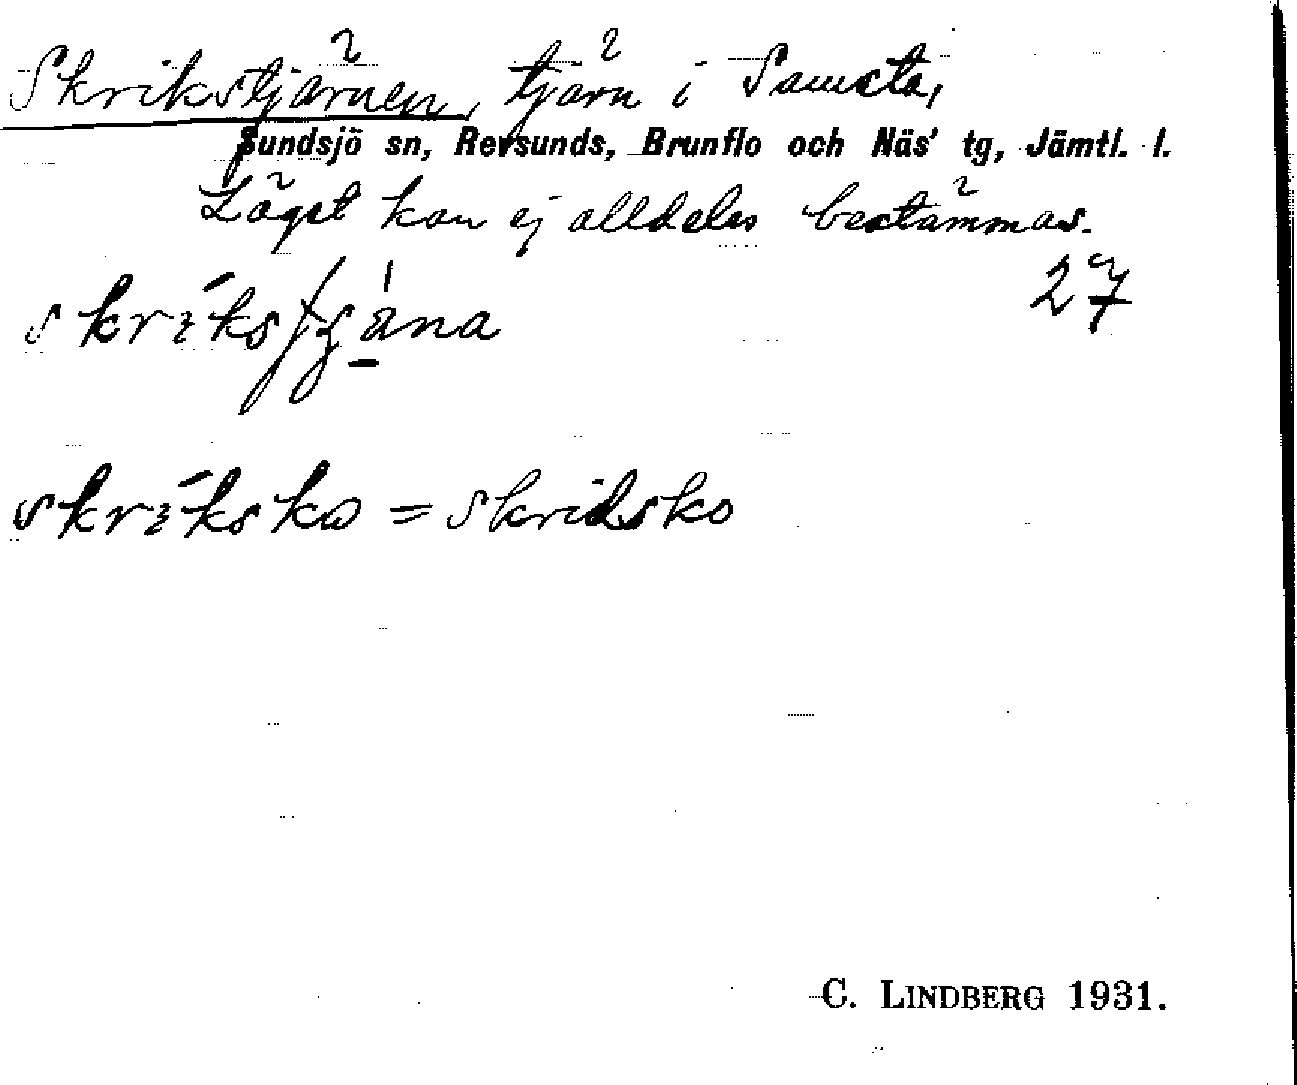 Skrikstjärnen, tjärn i Samsta,
Sundsjö sn, Revsunds, Brunflo och Näs' tg, Jämtl. l.
Läget kan ej alldeles bestämmas.
27
skríksko = skridsko
C. LINDBERG 1931.